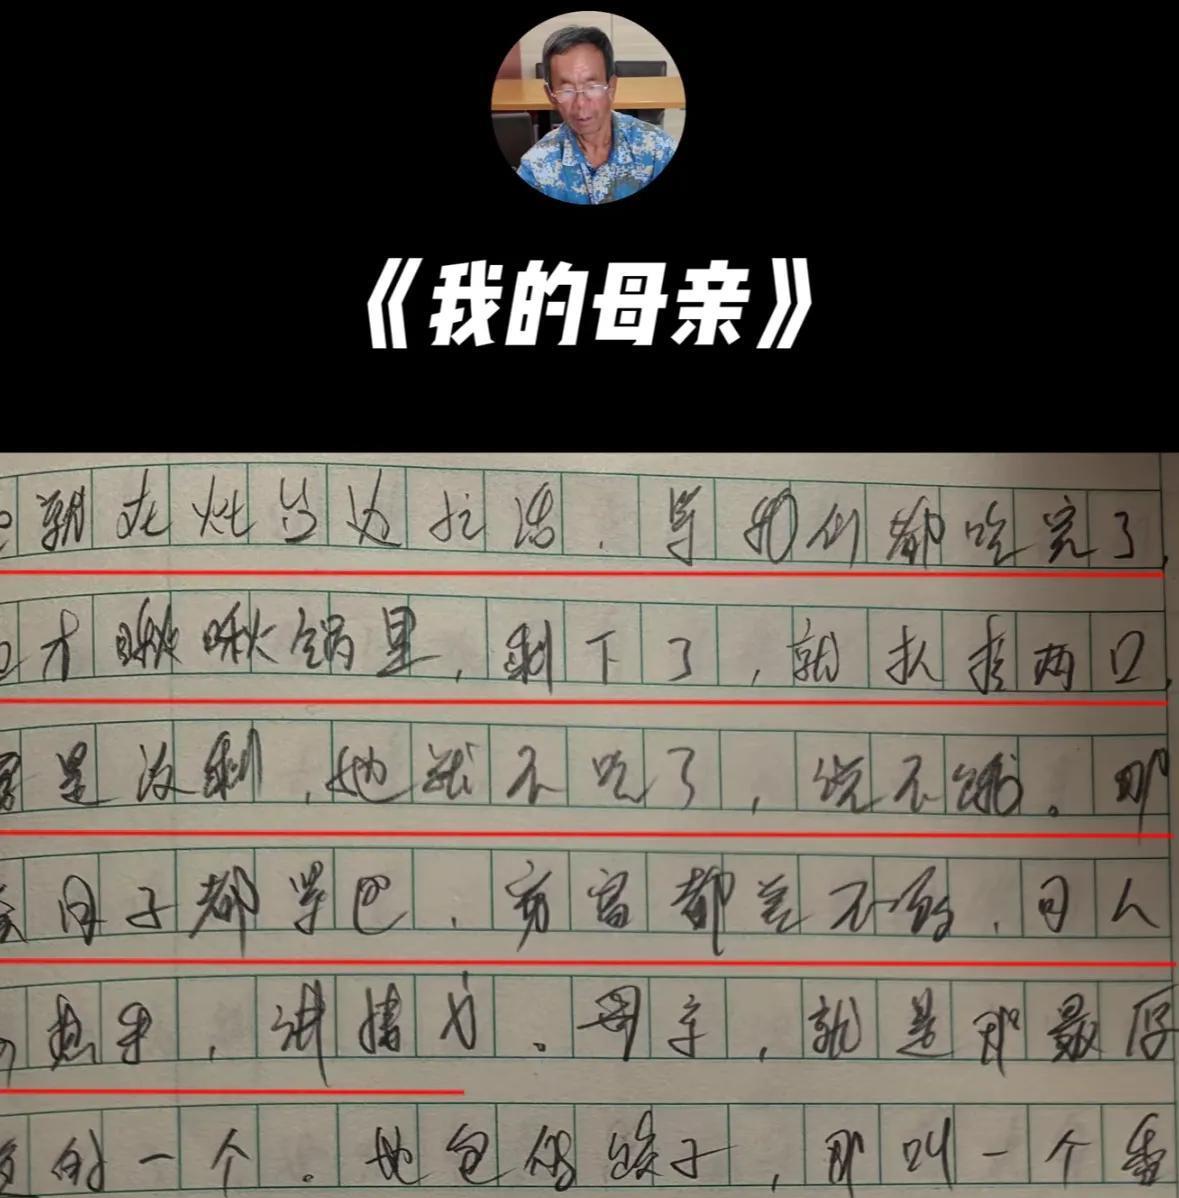 《我的母亲》
在灶台边忙活,等我们都吃完了,
才瞅瞅锅里,剩下了,就扒拉两口,
要是没剩,她就不吃了,说不饿。那
会日子都紧巴,穷富都差不多,可人
热乎,讲情义。母亲,就是那最厚
道的一个。她包的饺子,那叫一个香